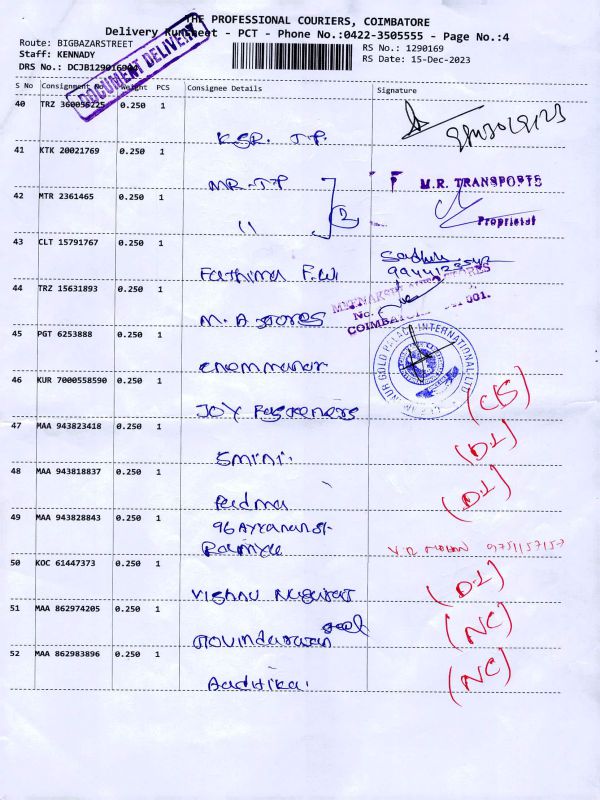 THE PROFESSIONAL COURIERS, COIMBATORE
Delivery Runsheet - PCT - Phone No.:0422-3505555 - Page No.:4
Route: BIGBAZARSTREET
RS No.: 1290169
Staff: KENNADY
RS Date: 15-Dec-2023
DRS No.: DCJB1290169004
DOCUMENT DELIVERY
S No Consignment No Weight PCS Consignee Details Signature
40 TRZ 360056225 0.250 1
KSR. T.P.
41 KTK 20021769 0.250 1
MR. T.P
M.R. TRANSPORTS
42 MTR 2361465 0.250 1
11
2
Proprietor
43 CLT 15791767 0.250 1
Fathima F.W.
44 TRZ 15631893 0.250 1
M. A Stores
COIMBATORE
45 PGT 6253888 0.250 1
chemmanur
46 KUR 7000558590 0.250 1
Joy Fasteners
(C/S)
47 MAA 943823418 0.250 1
Smini.
(D.L)
48 MAA 943818837 0.250 1
Padma
(D.L)
49 MAA 943828843 0.250 1
Ramya
V.R MOHAN
50 KOC 61447373 0.250 1
Vishnu Nugurat
(D.L)
51 MAA 862974205 0.250 1
Govindaswan
(NC)
52 MAA 862983896 0.250 1
Aadhikai.
(NC)